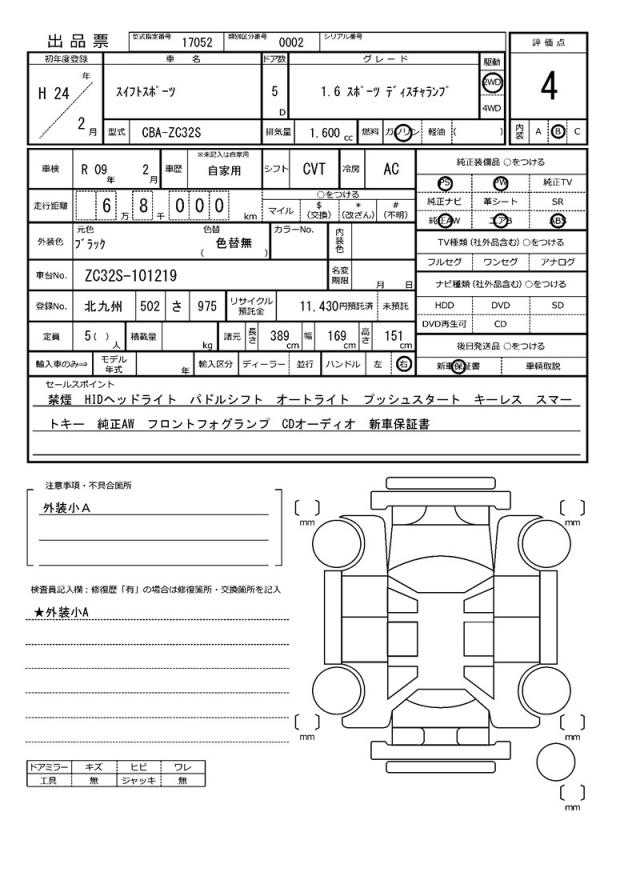 出品票 型式指定番号 17052 類別区分番号 0002 シリアル番号
評価点
初年度登録 車名 ドア数 グレード 駆動
H 24 年 2 月
スイフトスポーツ
5 D
1.6 スポーツ ディスチャランプ
2WD
4WD
4
型式 CBA-ZC32S 排気量 1.600 cc 燃料 ガソリン 軽油 ( )
内装 A B C
車検 R 09 年 2 月 車歴 ※未記入は自家用 自家用 シフト CVT 冷房 AC
純正装備品 ○をつける
PS PW 純正TV
純正ナビ 革シート SR
純正AW エアB ABS
走行距離 6 万 8 千 0 0 0 km
○をつける
マイル $(交換) *(改ざん) #(不明)
外装色 元色 ブラック 色替 ( 色替無 ) カラーNo. 内装色
TV種類 (社外品含む) ○をつける
フルセグ ワンセグ アナログ
車台No. ZC32S-101219 名変期限 月 日
ナビ種類 (社外品含む) ○をつける
HDD DVD SD
DVD再生可 CD
登録No. 北九州 502 さ 975 リサイクル預託金 11,430円預託済 未預託
定員 5( ) 人 積載量 kg 諸元 長さ 389 cm 幅 169 cm 高さ 151 cm
後日発送品 ○をつける
新車保証書 車輌取説
輸入車のみ⇒ モデル年式 年 輸入区分 ディーラー 並行 ハンドル 左 右
セールスポイント
禁煙 HIDヘッドライト パドルシフト オートライト プッシュスタート キーレス スマー
トキー 純正AW フロントフォグランプ CDオーディオ 新車保証書
注意事項・不具合箇所
外装小A
検査員記入欄：修復歴「有」の場合は修復箇所・交換箇所を記入
★外装小A
mm
mm
mm
mm
mm
ドアミラー キズ ヒビ ワレ
工具 無 ジャッキ 無